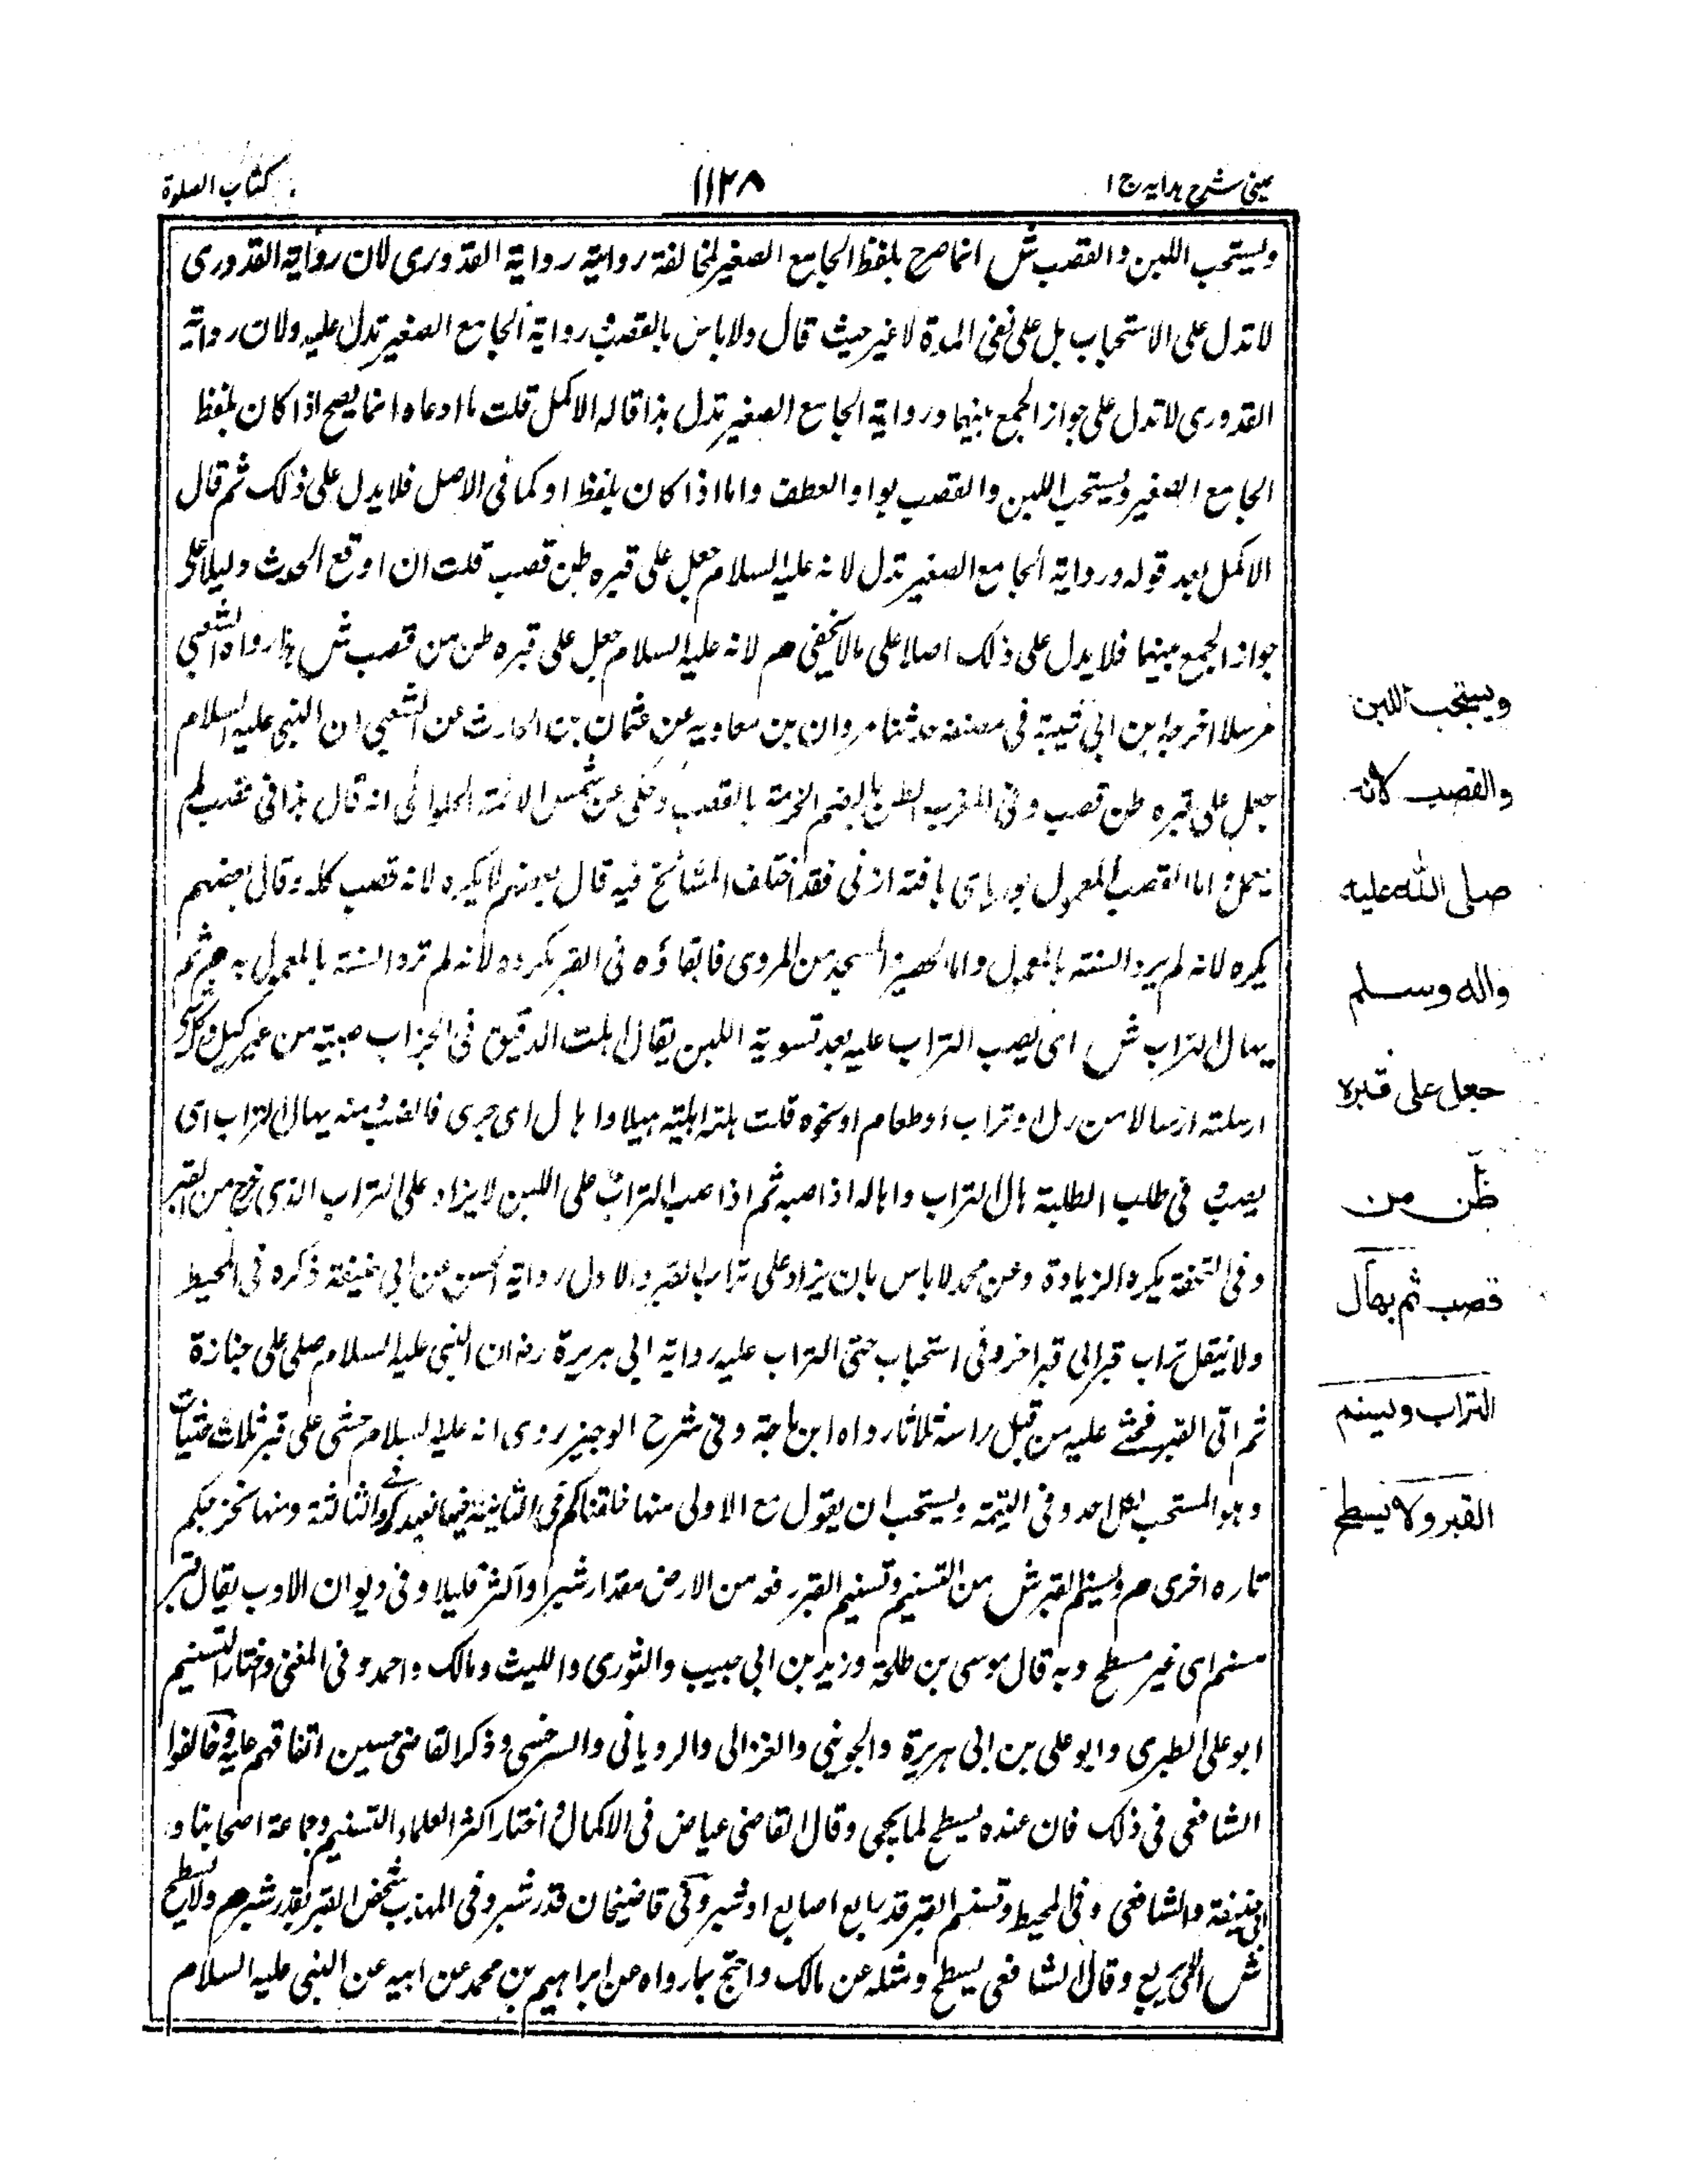 عینی شرح ہدایہ ج ا
١١٢٨
کتاب الصلوة
ویستحب اللبن والقصب ش انما صرح بلفظ الجامع الصغیر لمخالفة روایتہ روایة القدوری لان روایة القدوری
لا تدل علی الاستحباب بل علی نفی الشدة لا غیر حیث قال ولا باس بالقصب وروایة الجامع الصغیر تدل علیہ ولان روایة
القدوری لا تدل علی جواز الجمع بینہما وروایة الجامع الصغیر تدل ہذا قالہ الاکمل قلت ما ادعاہ انما یصح اذا کان بلفظ
الجامع الصغیر ویستحب اللبن والقصب بواو العطف واما اذا کان بلفظ او کما فی الاصل فلا یدل علی ذلک ثم قال
الاکمل بعد قولہ وروایة الجامع الصغیر تدل لانہ علیہ السلام جعل علی قبرہ طن قصب قلت ان اوقع الحدیث دلیلا علی
جواز الجمع بینہما فلا یدل علی ذلک اصلا علی ما لا یخفی م لانہ علیہ السلام جعل علی قبرہ طن من قصب ش ہذا رواہ الشعبی
مرسلا اخرجہ ابن ابی شیبة فی مصنفہ حدثنا مروان بن معاویہ عن عثمان بن الحارث عن الشعبی ان النبی علیہ السلام
جعل علی قبرہ طن قصب وفی المغرب الطن بالضم الحزمة بالقصب وحکی عن شمس الائمة الحلوائی انہ قال ہذا فی قصب لم
یعمل واما القصب المعمول بوریای بافتہ از نی فقد اختلف المشائخ فیہ قال بعضہم لا یکرہ لانہ قصب کلہ وقال بعضہم
یکرہ لانہ لم یرد السنتہ بالمعمول واما الحصیر المتخذ من البردی فالقاؤہ فی القبر مکروہ لانہ لم ترد السنتہ بالمعمول بہ م ثم
یہال التراب ش ای یصب التراب علیہ بعد تسویة اللبن یقال ہلت الدقیق فی الجراب صببتہ من غیر کیل وکل شی
ارسلتہ ارسالا من رمل او تراب او طعام او نحوہ قلت ہلتہ اہیلہ ہیلا وانہال ای جری فانصب ومنہ یہال التراب ای
یصب وفی طلب الطلبة ہال التراب واہالہ اذا صبہ ثم اذا صب التراب علی اللبن لا یزاد علی التراب الذی خرج من القبر
وفی التحفة یکرہ الزیادة وعن محمد لا باس بان یزاد علی تراب القبر والاول روایة الحسن عن ابی حنیفة ذکرہ فی المحیط
ولا ینقل تراب قبر الی قبر اخر وفی استحباب حثی التراب علیہ روایة ابی ہریرة رض ان النبی علیہ السلام صلی علی جنازة
ثم اتی القبر فحثے علیہ من قبل راسہ ثلاثا رواہ ابن ماجة وفی شرح الوجیز روی انہ علیہ السلام حثی علی قبر ثلاث حثیات
وہو المستحب لکل احد وفی التتمة ویستحب ان یقول مع الاولی منہا خلقناکم وفی الثانیة وفیہا نعیدکم وفی الثالثة ومنہا نخرجکم
تارہ اخری م ویسنم القبر ش من التسنیم وتسنیم القبر رفعہ من الارض مقدار شبر او اکثر قلیلا وفی دیوان الادب یقال قبر
مسنم ای غیر مسطح وبہ قال موسی بن طلحة ویزید بن ابی حبیب والثوری واللیث ومالک واحمد وفی المغنی واختار التسنیم
ابو علی الطبری وابو علی بن ابی ہریرة والجوینی والغزالی والرویانی والسرخسی وذکر القاضی حسین اتفاقہم علیہ وخالفوا
الشافعی فی ذلک فان عندہ یسطح لما یجی وقال القاضی عیاض فی الاکمال واختار اکثر العلماء التسنیم وجماعة اصحابنا و
ابی حنیفة والشافعی وفی المحیط وتسنیم القبر قدر اربع اصابع او شبر وفی قاضیخان قدر شبر وفی المہذب یشخص القبر بقدر شبر م ولا یسطح
ش ای لا یربع وقال الشافعی یسطح ومثلہ عن مالک واحتج بما رواہ عن ابراہیم بن محمد عن ابیہ عن النبی علیہ السلام
ویستحب اللبن
والقصب لانہ
صلی اللہ علیہ
والہ وسلم
جعل علی قبرہ
طن من
قصب ثم یھال
التراب ویسنم
القبر ولا یسطح